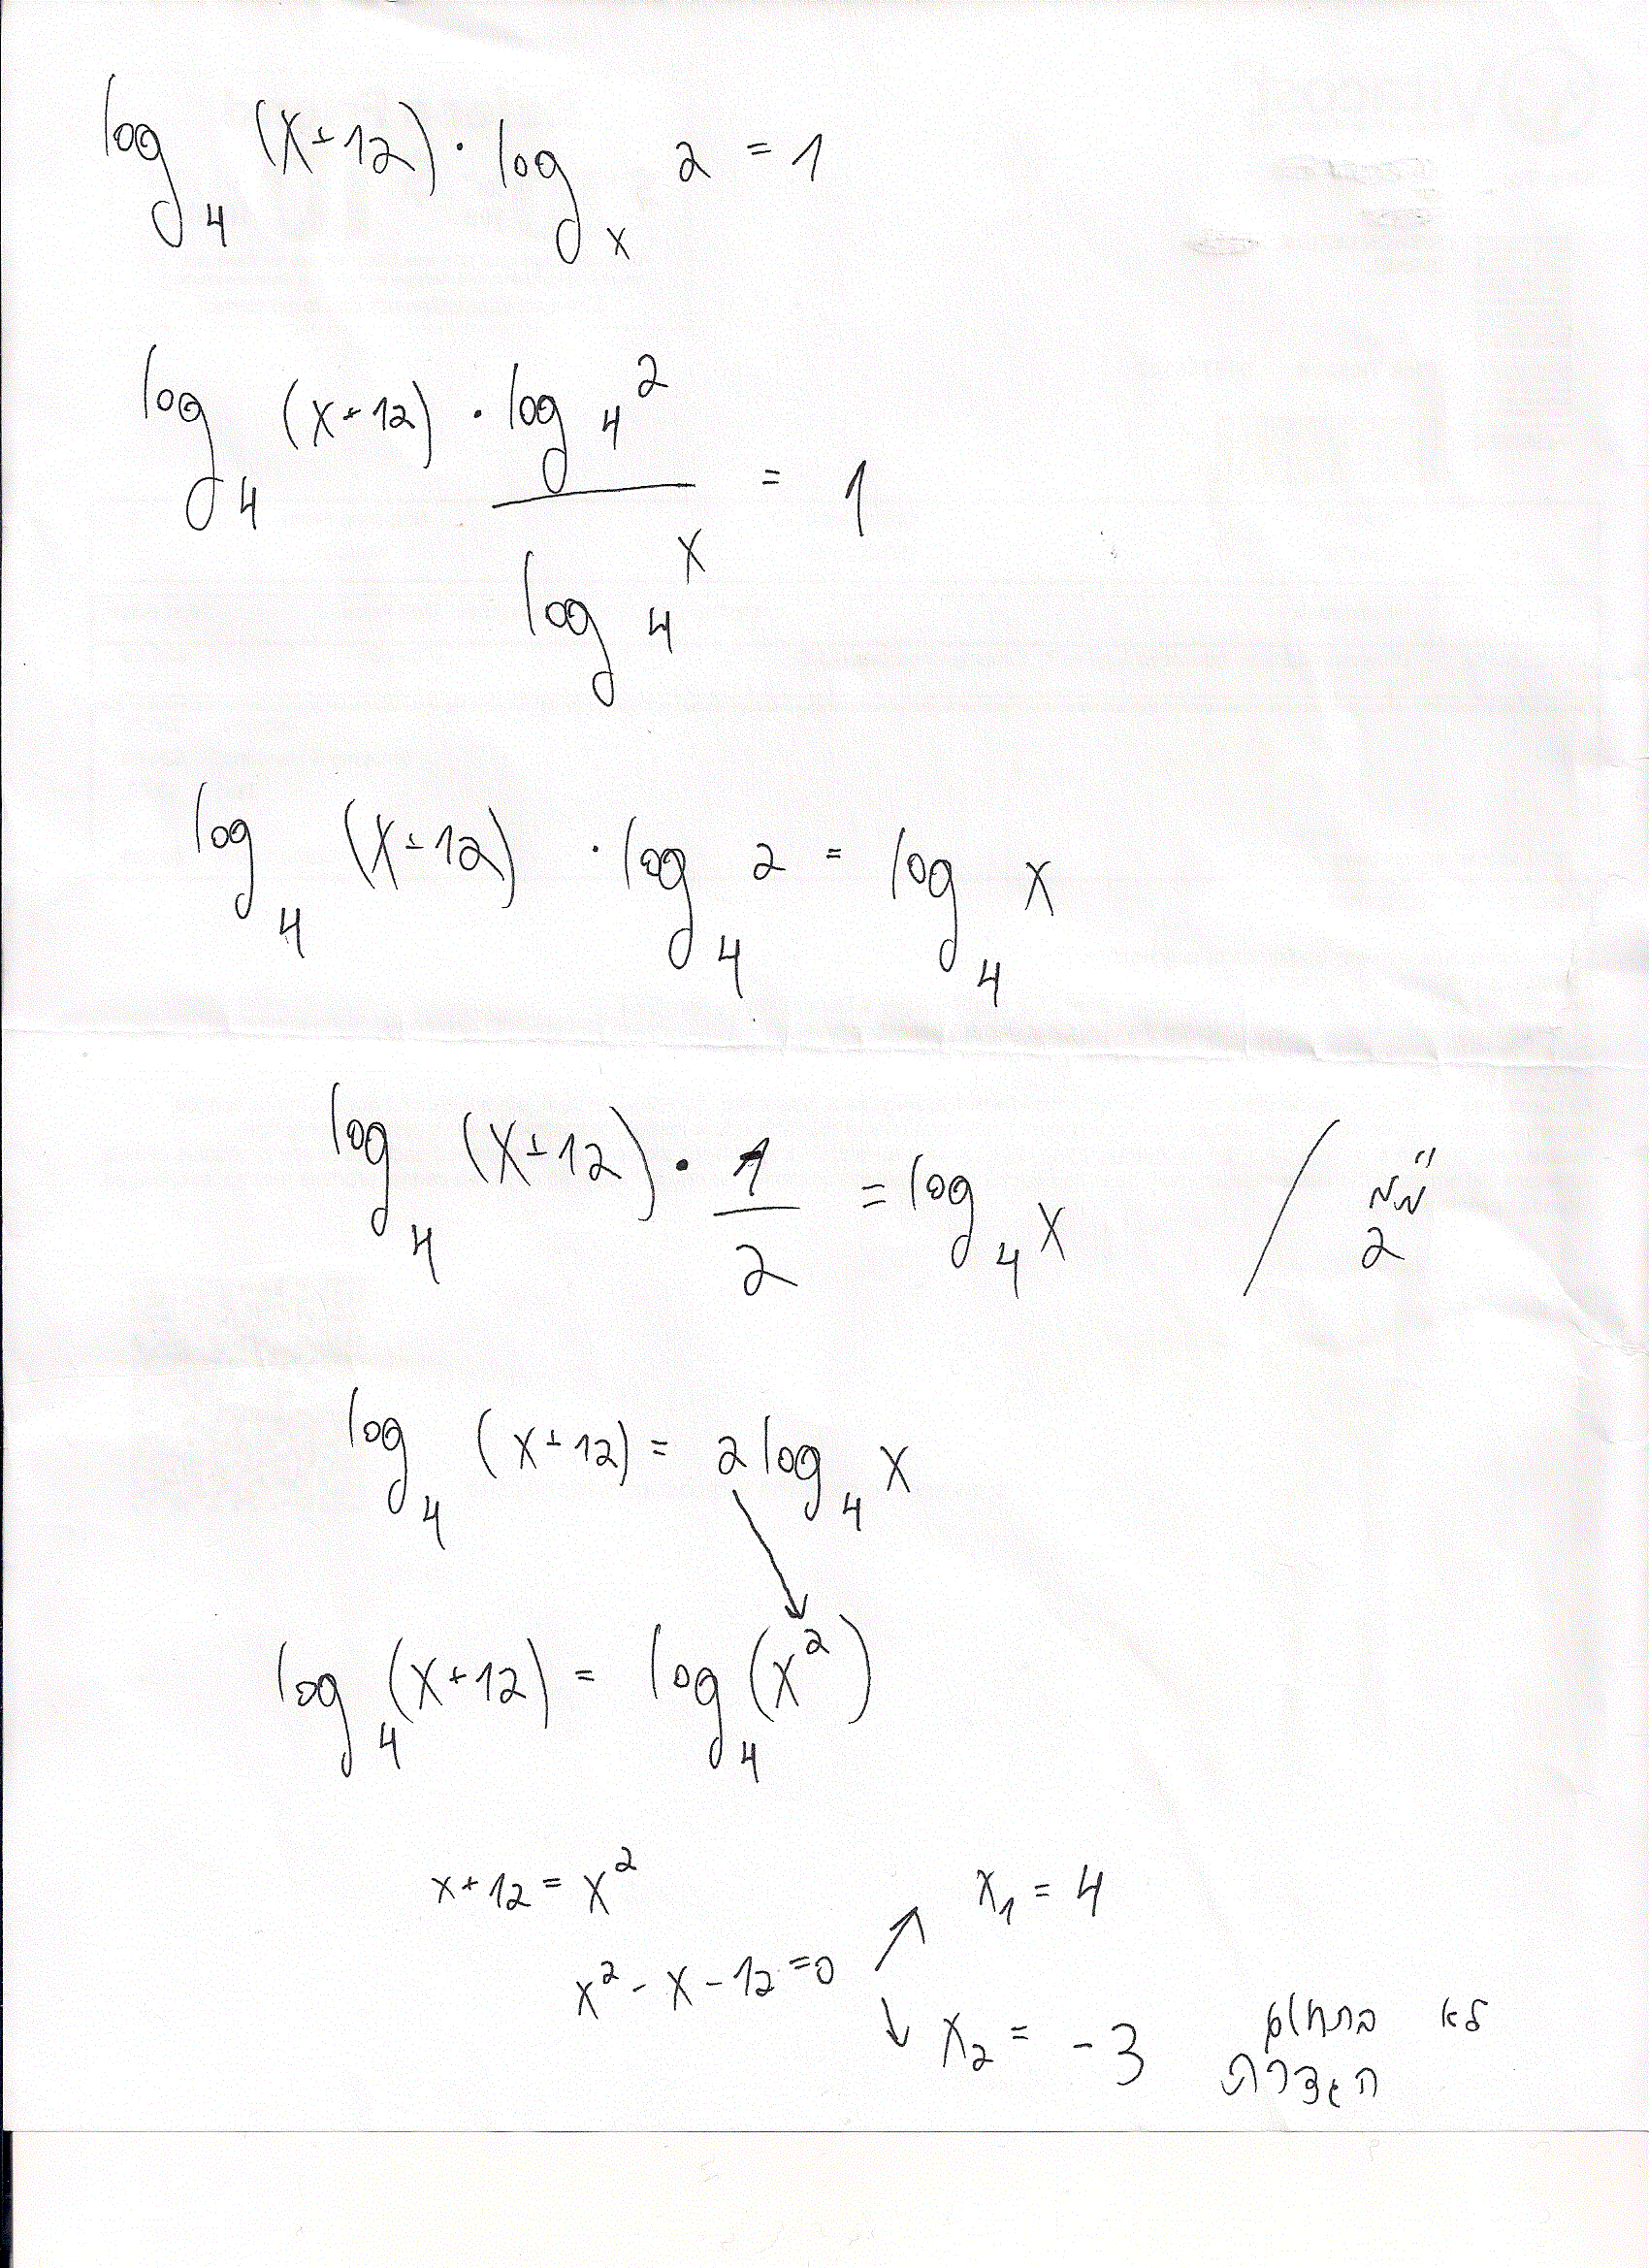 log₄ (x+12) · logₓ 2 = 1
log₄ (x+12) · log 4² / log 4ˣ = 1
log₄ (x+12) · log₄ 2 = log₄ x
log₄ (x+12) · 1/2 = log₄ x / 2
log₄ (x+12) = 2 log₄ x
log₄ (x+12) = log₄ (x²)
x+12 = x²
x₁ = 4
x² - x - 12 = 0
x₂ = -3 לא בתחום
הגדרה